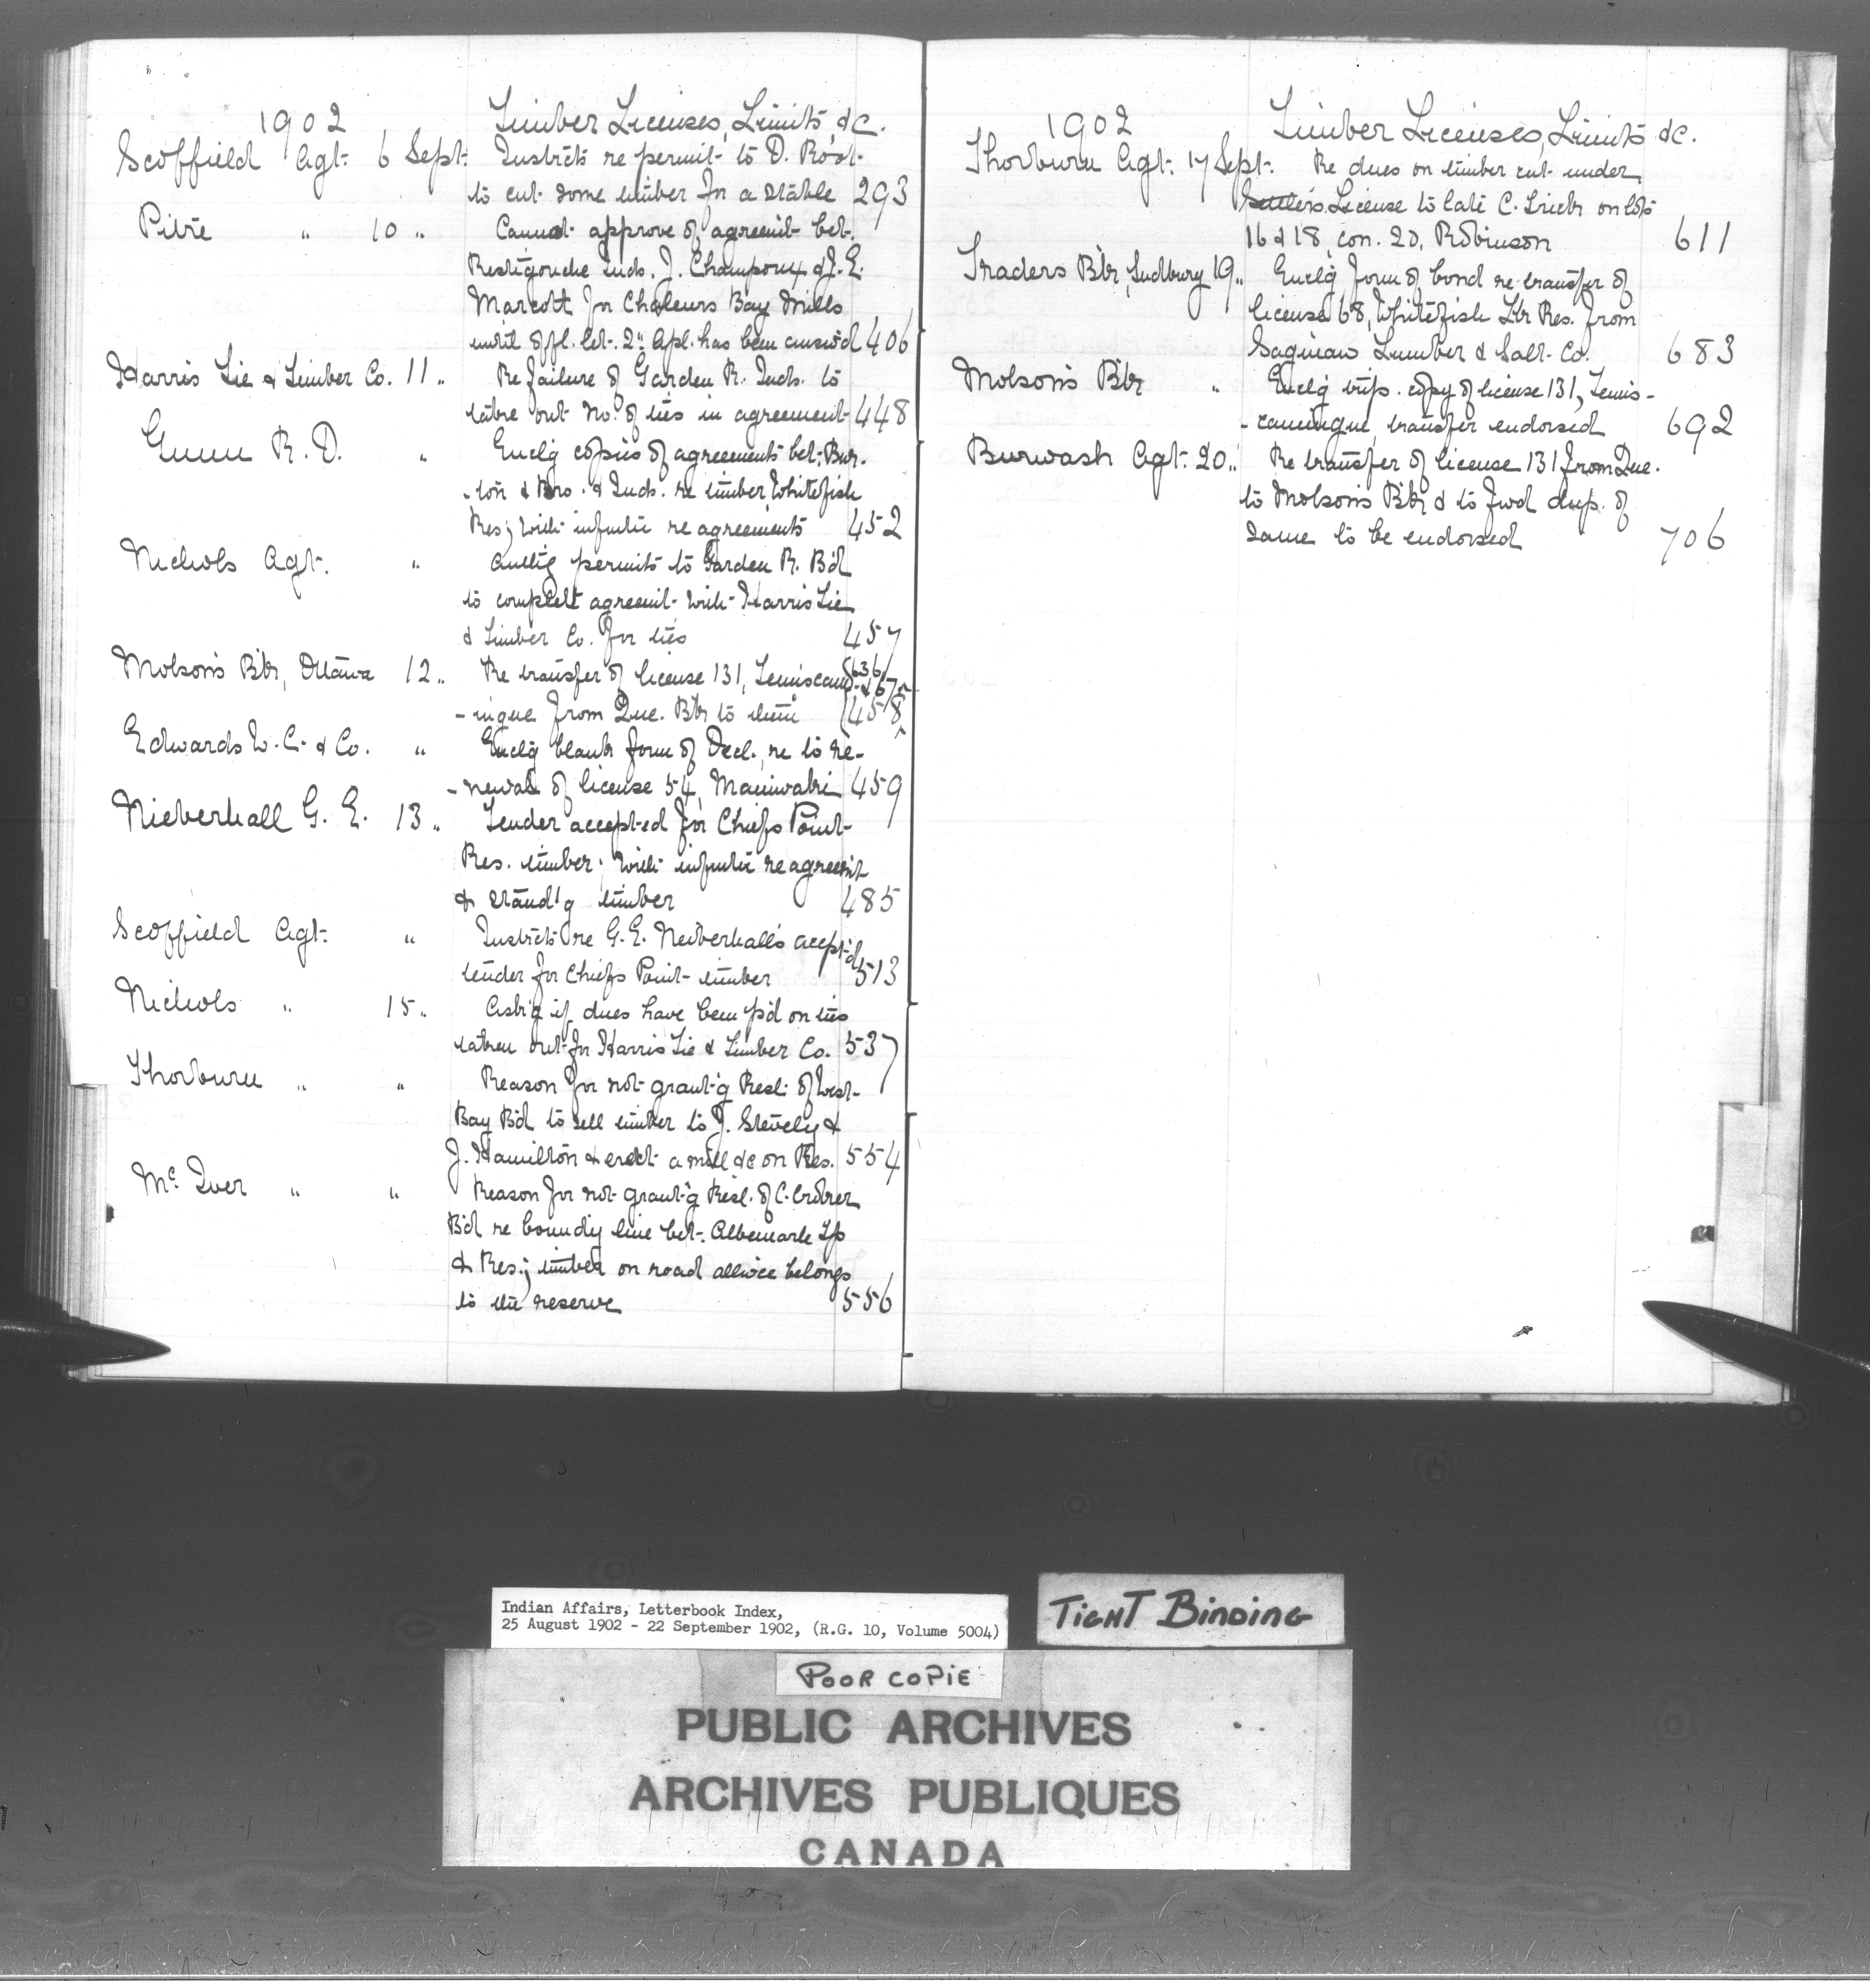 1902 Timber Licenses, Limits, &c.
Scoffield Agt. 6 Sept. Instrcts re permit to D. Root
to cut some timber for a stable 293
Pitre " 10 " Cannot approve of agreemt bet.
Restigouche Inds. J. Champoux & J. E.
Marcott for Chaleurs Bay Mills
until offl. let. 2nd Apl. has been answ'd 406
Harris Tie & Timber Co. 11 " Re failure of Garden R. Inds. to
take out no. of ties in agreement 448
Gunn R. D. " Enclg copies of agreements bet. Bur-
-ton & Bro. & Inds. re timber Whitefish
Res; with infmtn re agreements 452
Nichols Agt. " Authg permits to Garden R. B'd
to complete agreemt with Harris Tie
& Timber Co. for ties 457
Molson's B'k, Ottawa 12 " Re transfer of license 131, Temiscam- 636 & 675
-ingue from Que. B'k to them 458
Edwards W. C. & Co. " Enclg blank form of Decl. re to re-
-newal of license 54, Maniwaki 459
Nieberhall G. E. 13 " Tender accepted for Chiefs Point
Res. timber; with infmtn re agreem't
& stand'g timber 485
Scoffield Agt. " Instrcts re G. E. Neiberhall's accept'd
tender for Chiefs Point timber 513
Nichols " 15 " Ask'g if dues have been p'd on ties
taken out for Harris Tie & Timber Co. 537
Thorburn " " Reason for not grant'g Resl. of West
Bay B'd to sell timber to J. Stevely &
J. Hamilton & erect a mill &c on Res. 554
Mc Iver " " Reason for not grant'g Resl. of C. Croker
B'd re boundy line bet. Albemarle Tp
& Res.; timber on road allw'ce belongs
to the reserve 556
1902 Timber Licenses, Limits &c.
Thorburn Agt. 17 Sept. Re dues on timber cut under
Settlers License to late C. on lots
16 & 18, con. 20, Robinson 611
Traders B'k, Sudbury 19 " Enclg form of bond re transfer of
license 68, Whitefish Lk Res. from
Saginaw Lumber & Salt Co. 683
Molson's B'k " Enclg trip. copy of license 131, Temis-
-camingue, transfer endorsed 692
Burwash Agt. 20 " Re transfer of license 131 from Que.
to Molson's B'k & to fwd dup. of
same to be endorsed 706
Indian Affairs, Letterbook Index,
25 August 1902 - 22 September 1902, (R.G. 10, Volume 5004)
TIGHT BINDING
POOR COPIE
PUBLIC ARCHIVES
ARCHIVES PUBLIQUES
CANADA